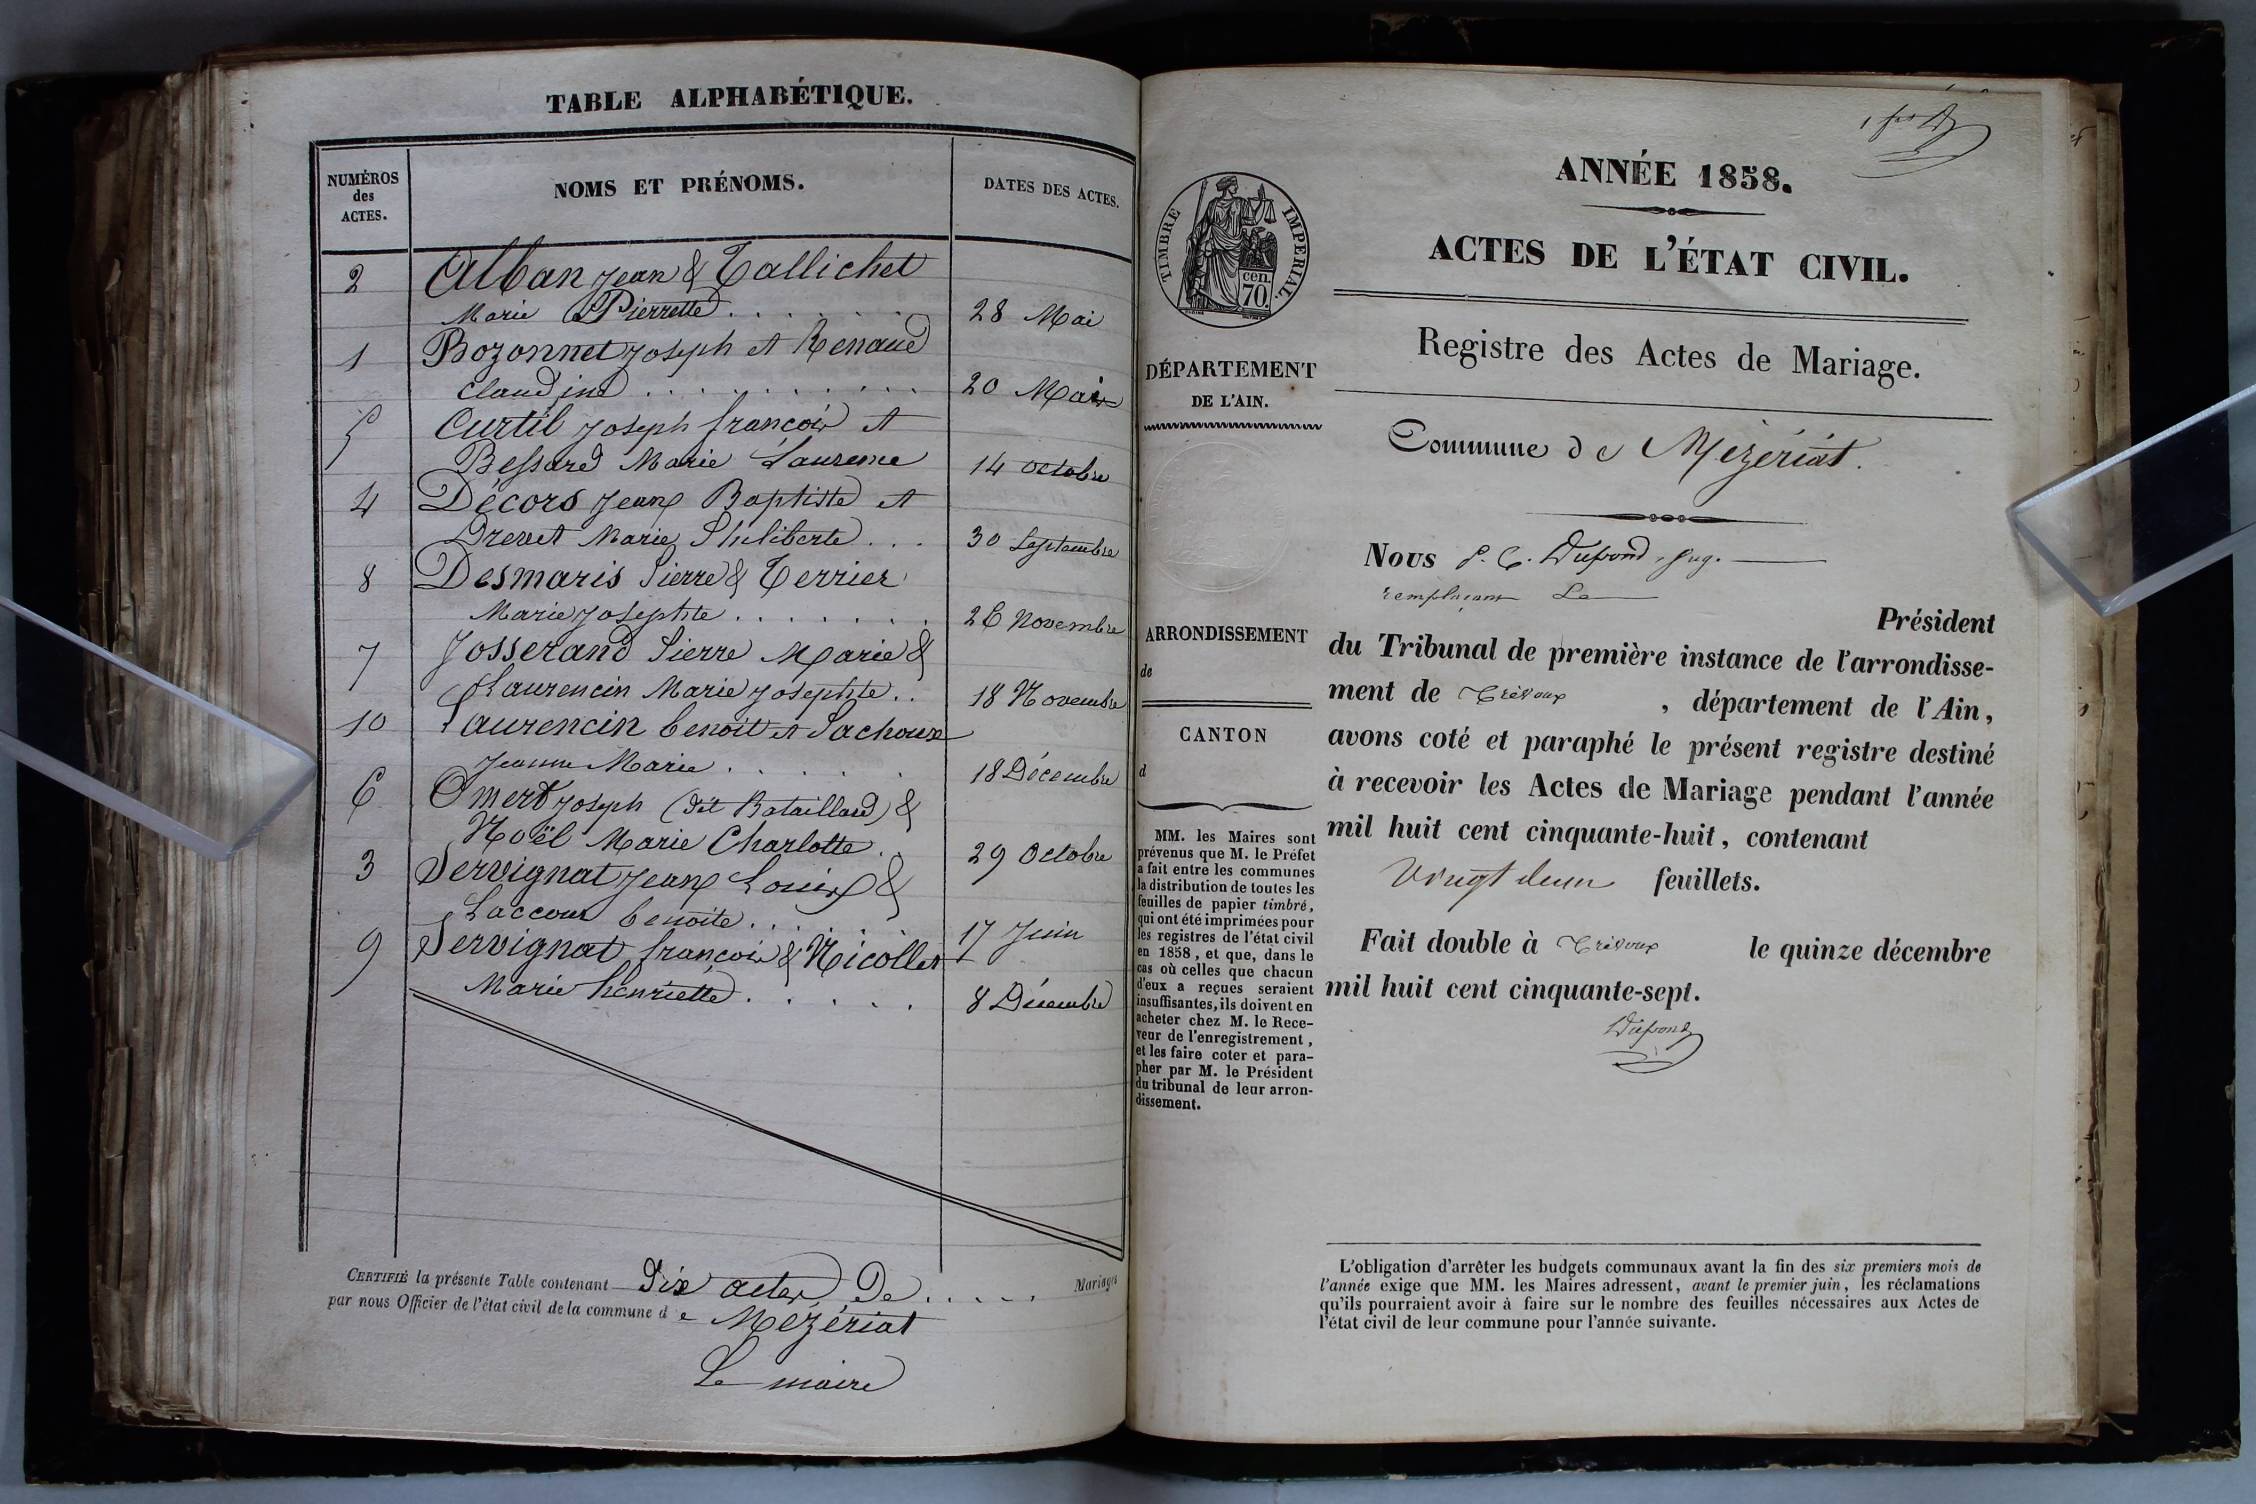 TABLE ALPHABÉTIQUE.
NUMÉROS
des
ACTES.
NOMS ET PRÉNOMS.
DATES DES ACTES.
2 Alban Jean & Tallichet
Marie Pierrette . . . . . . 28 Mai
1 Bozonnet Joseph et Renaud
Claudine . . . . . . . . . . 20 Mai
5 Curtil Joseph françois et
Bessard Marie Laurence 14 octobre
4 Décors Jean Baptiste et
Drevet Marie Philiberte . . . 30 Septembre
8 Desmaris Pierre & Terrier
Marie Josephte . . . . . . . . 26 Novembre
7 Josserand Pierre Marie &
Laurencin Marie Josephte . . 18 Novembre
10 Laurencin Benoit et Pachoux
Jeanne Marie . . . . . . 18 Décembre
6 Omert Joseph (dit Bataillard) &
Noël Marie Charlotte . . 29 Octobre
3 Servignat Jean Louis &
Laccour benoite . . . . . 17 Juin
9 Servignat françois & Nicollet
Marie henriette . . . . . . 8 Décembre
CERTIFIÉ la présente Table contenant Dix actes De . . . . . Mariages
par nous Officier de l'état civil de la commune d e Mézériat
Le maire
ANNÉE 1858.
ACTES DE L'ÉTAT CIVIL.
Registre des Actes de Mariage.
TIMBRE IMPERIAL.
cen.
70.
DÉPARTEMENT
DE L'AIN.
ARRONDISSEMENT
de
CANTON
d
MM. les Maires sont
prévenus que M. le Préfet
a fait entre les communes
la distribution de toutes les
feuilles de papier timbré,
qui ont été imprimées pour
les registres de l'état civil
en 1858, et que, dans le
cas où celles que chacun
d'eux a reçues seraient
insuffisantes, ils doivent en
acheter chez M. le Rece-
veur de l'enregistrement,
et les faire coter et para-
pher par M. le Président
du tribunal de leur arron-
dissement.
Commune de Mézériat.
Nous Dupond, Jug.
remplaçant Le
Président
du Tribunal de première instance de l'arrondisse-
ment de Trévoux , département de l'Ain,
avons coté et paraphé le présent registre destiné
à recevoir les Actes de Mariage pendant l'année
mil huit cent cinquante-huit, contenant
Vingt deux feuillets.
Fait double à Trévoux le quinze décembre
mil huit cent cinquante-sept.
Dupond
L'obligation d'arrêter les budgets communaux avant la fin des six premiers mois de
l'année exige que MM. les Maires adressent, avant le premier juin, les réclamations
qu'ils pourraient avoir à faire sur le nombre des feuilles nécessaires aux Actes de
l'état civil de leur commune pour l'année suivante.